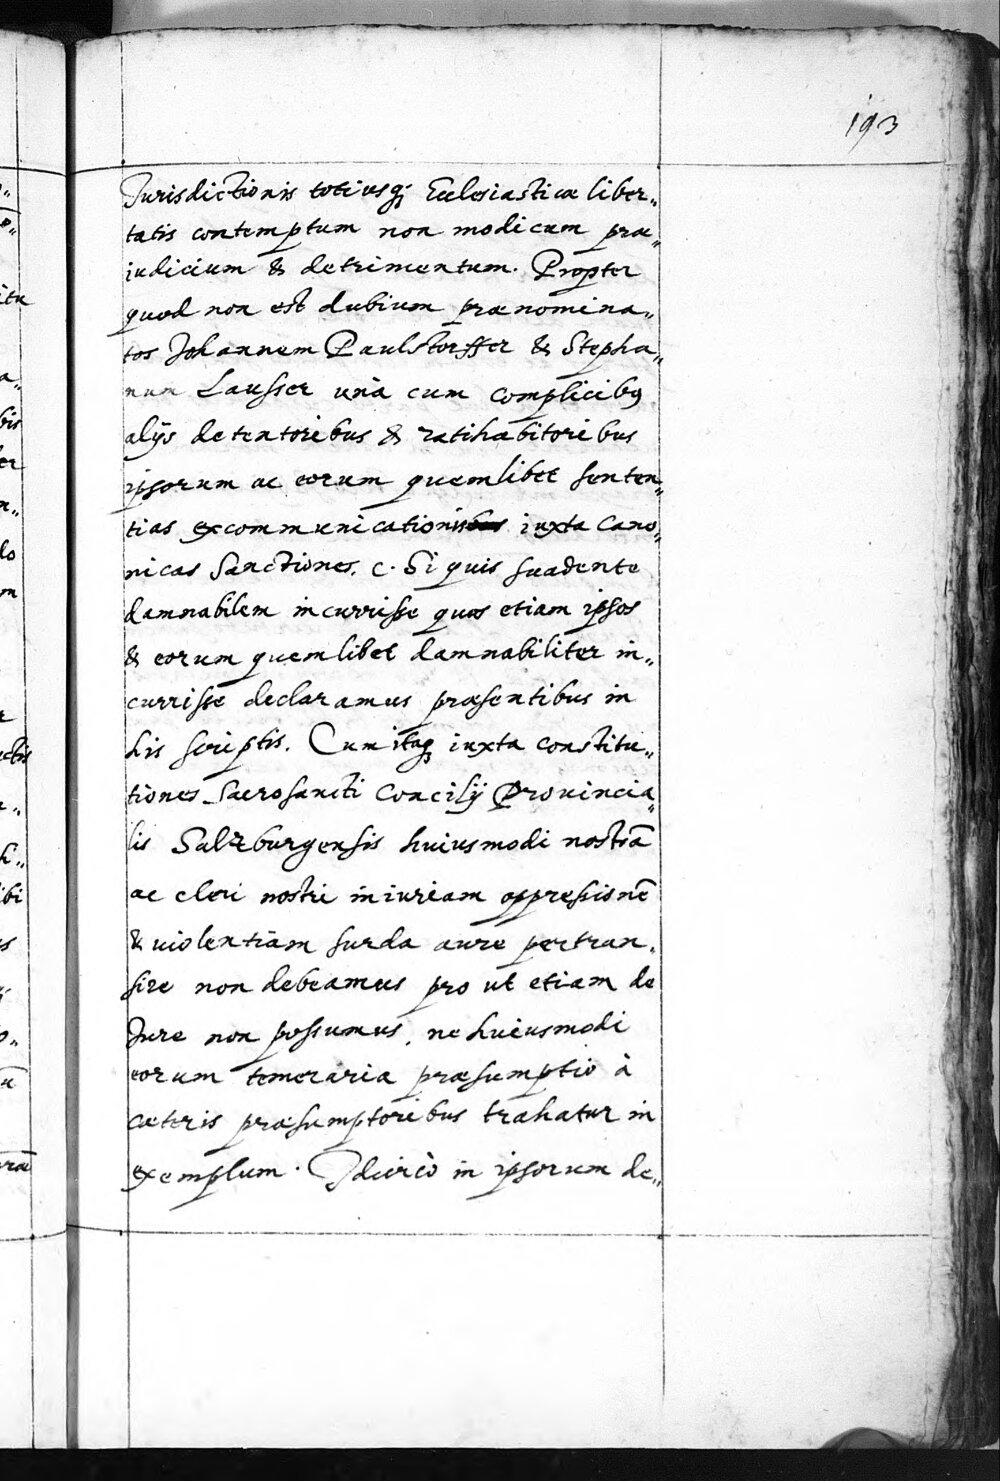 193
Jurisdictionis totiusq; Ecclesiasticæ liber„
tatis contemptum non modicum præ„
iudicium & detrimentum. Propter
quod non est dubium prænomina„
tos Johannem Paulstorffer & Stepha„
num Lausser unà cum complicibꝰ
alijs detentoribus & ratihabitoribus
ipsorum ac eorum quemlibet senten„
tias excommunicationis iuxta Cano„
nicas Sanctiones. c. Si quis suadente
damnabilem incurrisse quos etiam ipsos
& eorum quemlibet damnabiliter in„
currisse declaramus præsentibus in
his scriptis. Cum itaq; iuxta constitu„
tiones Sacrosancti Concilij Prouincia„
lis Salzburgensis huiusmodi nostrā
ac cleri nostri iniuriam oppressionē
& uiolentiam surda aure pertran„
sire non debeamus pro ut etiam de
Jure non possumus, ne huiusmodi
eorum temeraria præsumptio à
cæteris præsumptoribus trahatur in
exemplum. Idcircò in ipsorum de„